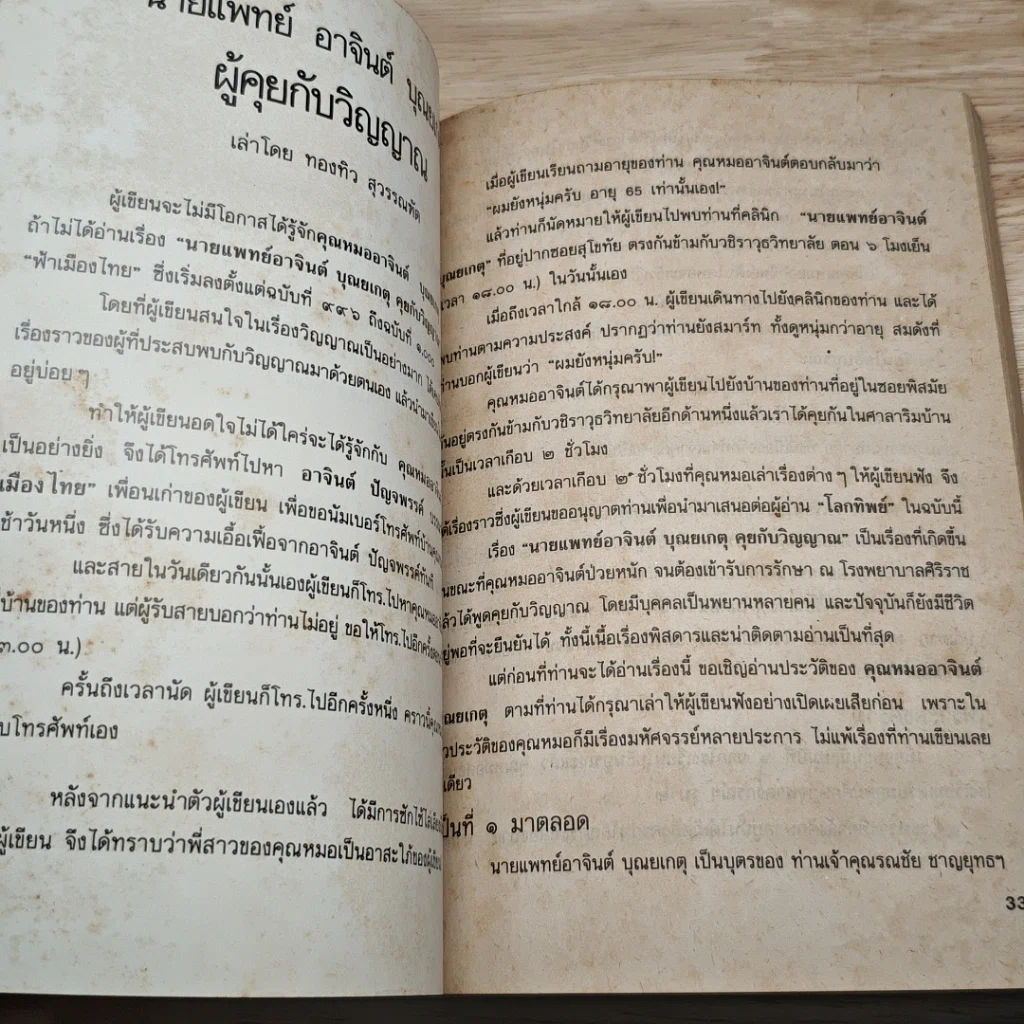 นายแพทย์ อาจินต์
ผู้คุยกับวิญญาณ
เล่าโดย ทองทิว สุวรรณทัต
ผู้เขียนจะไม่มีโอกาสได้รู้จักคุณหมออาจินต์
ถ้าไม่ได้อ่านเรื่อง “นายแพทย์อาจินต์ บุณยเกตุ คุยกับวิญญาณ
“ฟ้าเมืองไทย” ซึ่งเริ่มลงตั้งแต่ฉบับที่ ๙๙๖ ถึงฉบับที่ ๑,๐๐๐
โดยที่ผู้เขียนสนใจในเรื่องวิญญาณเป็นอย่างมาก
เรื่องราวของผู้ที่ประสบพบกับวิญญาณมาด้วยตนเอง
อยู่บ่อยๆ
ทำให้ผู้เขียนอดใจไม่ได้ใคร่จะได้รู้จักกับ
เป็นอย่างยิ่ง จึงได้โทรศัพท์ไปหา อาจินต์ ปัญจพรรค์
เมืองไทย” เพื่อนเก่าของผู้เขียน เพื่อขอนัมเบอร์โทรศัพท์
เช้าวันหนึ่ง ซึ่งได้รับความเอื้อเฟื้อจากอาจินต์ ปัญจพรรค์ทันที
และสายในวันเดียวกันนั้นเองผู้เขียนก็โทร.ไปหา
บ้านของท่าน แต่ผู้รับสายบอกว่าท่านไม่อยู่ ขอให้โทร.ไปอีกครั้ง
๓.๐๐ น.)
ครั้นถึงเวลานัด ผู้เขียนก็โทร.ไปอีกครั้งหนึ่ง
โทรศัพท์เอง
หลังจากแนะนำตัวผู้เขียนเองแล้ว ได้มีการซักไซ้
ผู้เขียน จึงได้ทราบว่าพี่สาวของคุณหมอเป็นอาสะใภ้ของผู้เขียน
เมื่อผู้เขียนเรียนถามอายุของท่าน คุณหมออาจินต์ตอบกลับมาว่า
“ผมยังหนุ่มครับ อายุ 65 เท่านั้นเอง!”
แล้วท่านก็นัดหมายให้ผู้เขียนไปพบท่านที่คลินิก “นายแพทย์อาจินต์
บุณยเกตุ” ที่อยู่ปากซอยสุโขทัย ตรงกันข้ามกับวชิราวุธวิทยาลัย ตอน ๖ โมงเย็น
เวลา ๑๘.๐๐ น.) ในวันนั้นเอง
เมื่อถึงเวลาใกล้ ๑๘.๐๐ น. ผู้เขียนเดินทางไปยังคลินิกของท่าน และได้
พบท่านตามความประสงค์ ปรากฏว่าท่านยังสมาร์ท ทั้งดูหนุ่มกว่าอายุ สมดังที่
ท่านบอกผู้เขียนว่า “ผมยังหนุ่มครับ!”
คุณหมออาจินต์ได้กรุณาพาผู้เขียนไปยังบ้านของท่านที่อยู่ในซอยพิสมัย
อยู่ตรงกันข้ามกับวชิราวุธวิทยาลัยอีกด้านหนึ่งแล้วเราได้คุยกันในศาลาริมบ้าน
เป็นเวลาเกือบ ๒ ชั่วโมง
และด้วยเวลาเกือบ ๒ ชั่วโมงที่คุณหมอเล่าเรื่องต่างๆ ให้ผู้เขียนฟัง จึง
ได้เรื่องราวซึ่งผู้เขียนขออนุญาตท่านเพื่อนำมาเสนอต่อผู้อ่าน “โลกทิพย์” ในฉบับนี้
เรื่อง “นายแพทย์อาจินต์ บุณยเกตุ คุยกับวิญญาณ” เป็นเรื่องที่เกิดขึ้น
ในขณะที่คุณหมออาจินต์ป่วยหนัก จนต้องเข้ารับการรักษา ณ โรงพยาบาลศิริราช
แล้วได้พูดคุยกับวิญญาณ โดยมีบุคคลเป็นพยานหลายคน และปัจจุบันก็ยังมีชีวิต
อยู่พอที่จะยืนยันได้ ทั้งนี้เนื้อเรื่องพิสดารและน่าติดตามอ่านเป็นที่สุด
แต่ก่อนที่ท่านจะได้อ่านเรื่องนี้ ขอเชิญอ่านประวัติของ คุณหมออาจินต์
บุณยเกตุ ตามที่ท่านได้กรุณาเล่าให้ผู้เขียนฟังอย่างเปิดเผยเสียก่อน เพราะใน
ประวัติของคุณหมอก็มีเรื่องมหัศจรรย์หลายประการ ไม่แพ้เรื่องที่ท่านเขียนเลย
เดียว
เป็นที่ ๑ มาตลอด
นายแพทย์อาจินต์ บุณยเกตุ เป็นบุตรของ ท่านเจ้าคุณรณชัย ชาญยุทธฯ
33